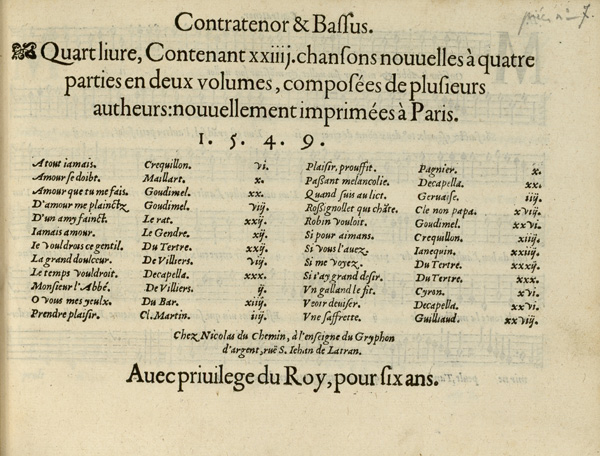 pièce n° 7.
Contratenor & Baſsus.
Quart liure, Contenant xxiiij. chanſons nouuelles à quatre
parties en deux volumes, compoſées de pluſieurs
autheurs: nouuellement imprimées à Paris.
1. 5. 4. 9.
A tout iamais. Crequillon. vi.
Amour ſe doibt. Maillart. x.
Amour que tu me fais. Goudimel. xx.
D'amour me plainctz Goudimel. viij.
D'un amy fainct. Le rat. xxij.
Iamais amour. Le Gendre. xij.
Ie vouldrois ce gentil. Du Tertre. xxij.
La grand doulceur. De Villiers. viij.
Le temps vouldroit. Decapella. xxx.
Monſieur l'Abbé. De Villiers. ij.
O vous mes yeulx. Du Bar. xiiij.
Prendre plaiſir. Cl. Martin. iiij.
Plaiſir, prouffit. Pagnier. x.
Paſſant melancolie. Decapella. xx.
Quand ſuis au lict. Geruaiſe. iiij.
Roſsignollet qui chãte. Cle non papa. xviij.
Robin vouloit. Goudimel. xxvi.
Si pour aimans. Crequillon. xiiij.
Si vous l'auez. Ianequin. xxiiij.
Si me voyez. Du Tertre. xxxij.
Si t'ay grand deſir. Du Tertre. xxx.
Vn galland le fit. Cyron. xvi.
Veoir deuiſer. Decapella. xxvi.
Vne ſaffrette. Guilliaud. xxviij.
Chez Nicolas du Chemin, à l'enſeigne du Gryphon
d'argent, ruë S. Iehan de Latran.
Auec priuilege du Roy, pour ſix ans.